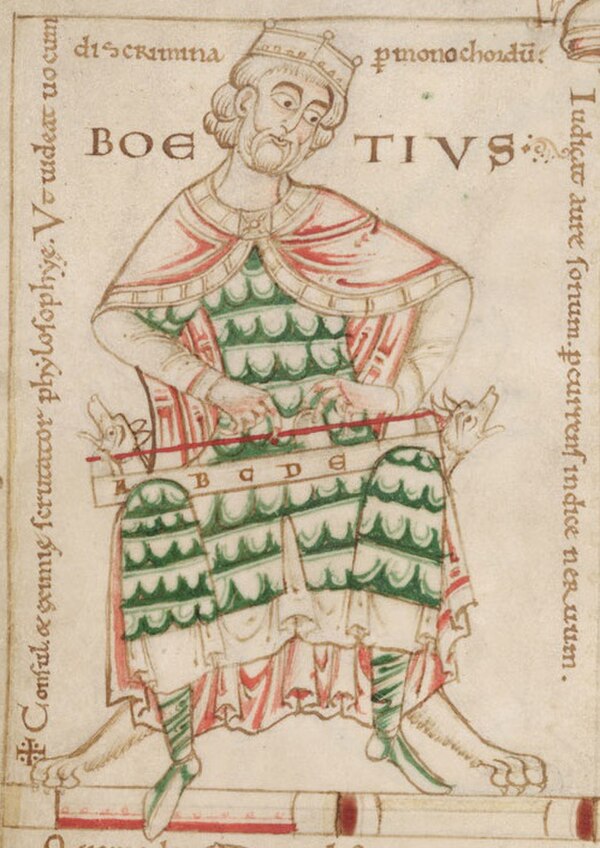 ✠ Consul & eximię scrutator phylosophyę. Vt uideat uocum
discrimina p monochordū;
BOETIUS
Iudicat aure sonum. pcurrens indice neruum.
A B C D E